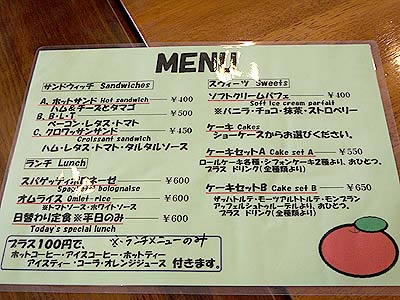 MENU
サンドウィッチ Sandwiches
A. ホットサンド Hot sandwich ￥400
ハム&チーズとタマゴ
B. B・L・T ￥500
ベーコン・レタス・トマト
C. クロワッサンサンド ￥450
Croissant sandwich
ハム・レタス・トマト・タルタルソース
ランチ Lunch
スパゲッティボロネーゼ ￥600
Spaghetti bolognaise
オムライス Omlet-rice ￥600
※トマトソース・ホワイトソース
日替わり定食 ※平日のみ ￥600
Today's special lunch
プラス100円で、 ※ランチメニューのみ
ホットコーヒー・アイスコーヒー・ホットティー
アイスティー・コーラ・オレンジジュース 付きます。
スウィーツ Sweets
ソフトクリームパフェ ￥400
Soft ice cream parfait
※バニラ・チョコ・抹茶・ストロベリー
ケーキ Cakes
ショーケースからお選びください。
ケーキセットA Cake set A ￥550
ロールケーキ各種・シフォンケーキ2種より、おひとつ。
プラス ドリンク(全種類より)
ケーキセットB Cake set B ￥650
ザッハトルテ・モーツアルトトルテ・モンブラン
アップフェルシュトゥルーデルより、おひとつ。
プラス ドリンク(全種類より)